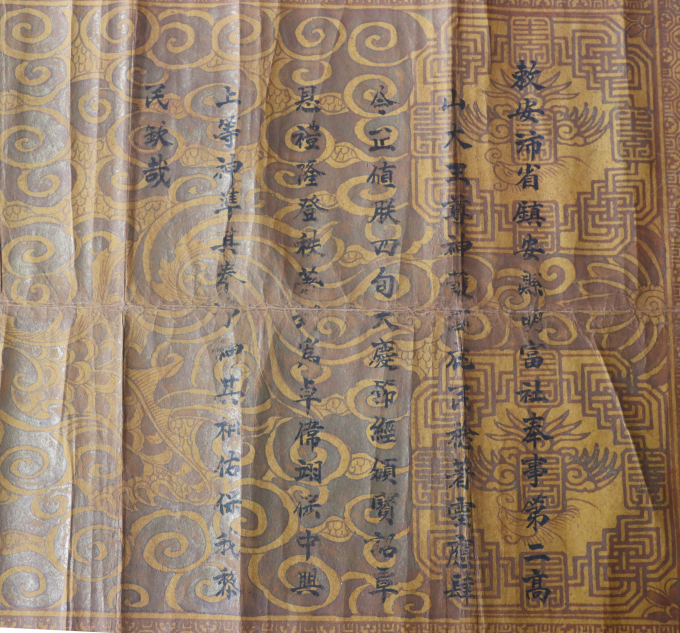 敕安沛省鎮安縣明富社奉事第二高
山大王尊神護國庇民稔著靈應肆
今正値朕四旬大慶節經頒寶詔覃
恩禮隆登秩著封爲卓偉翊保中興
上等神準其奉事神其相佑保我黎
民欽哉